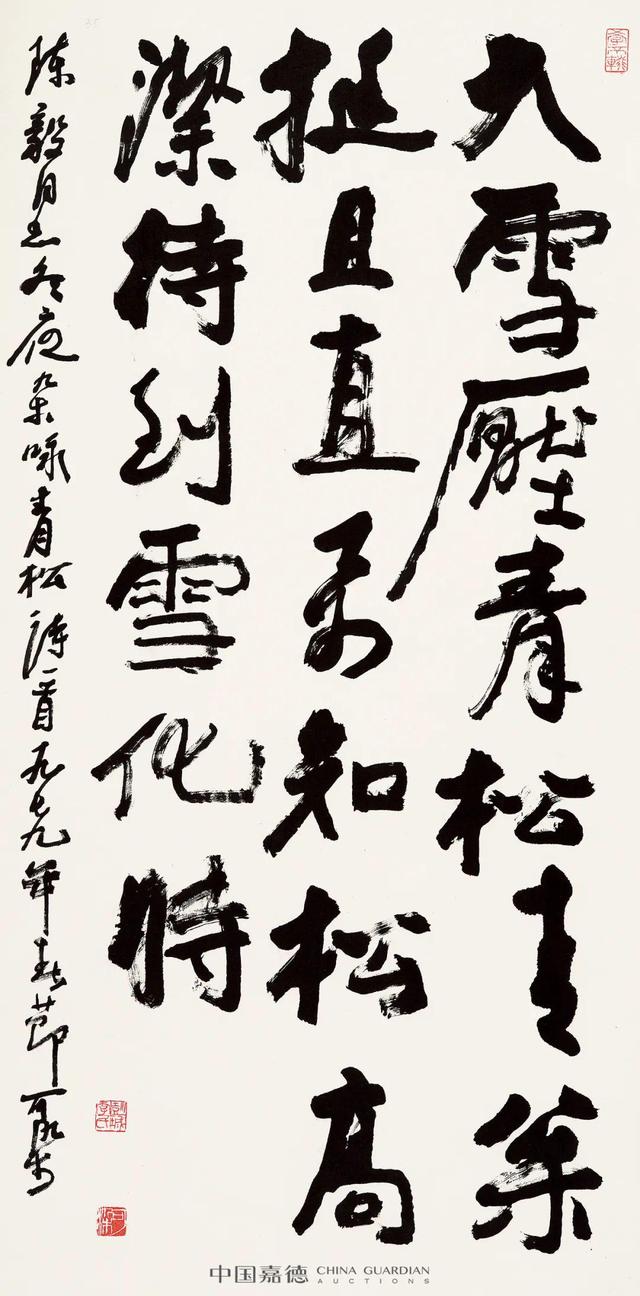 大雪壓青松青枀
挺且直要知松高
潔待到雪化時
陳毅同志冬夜杂咏青松詩一首一九七九年春節可染书
中国嘉德 CHINA GUARDIAN
AUCTIONS